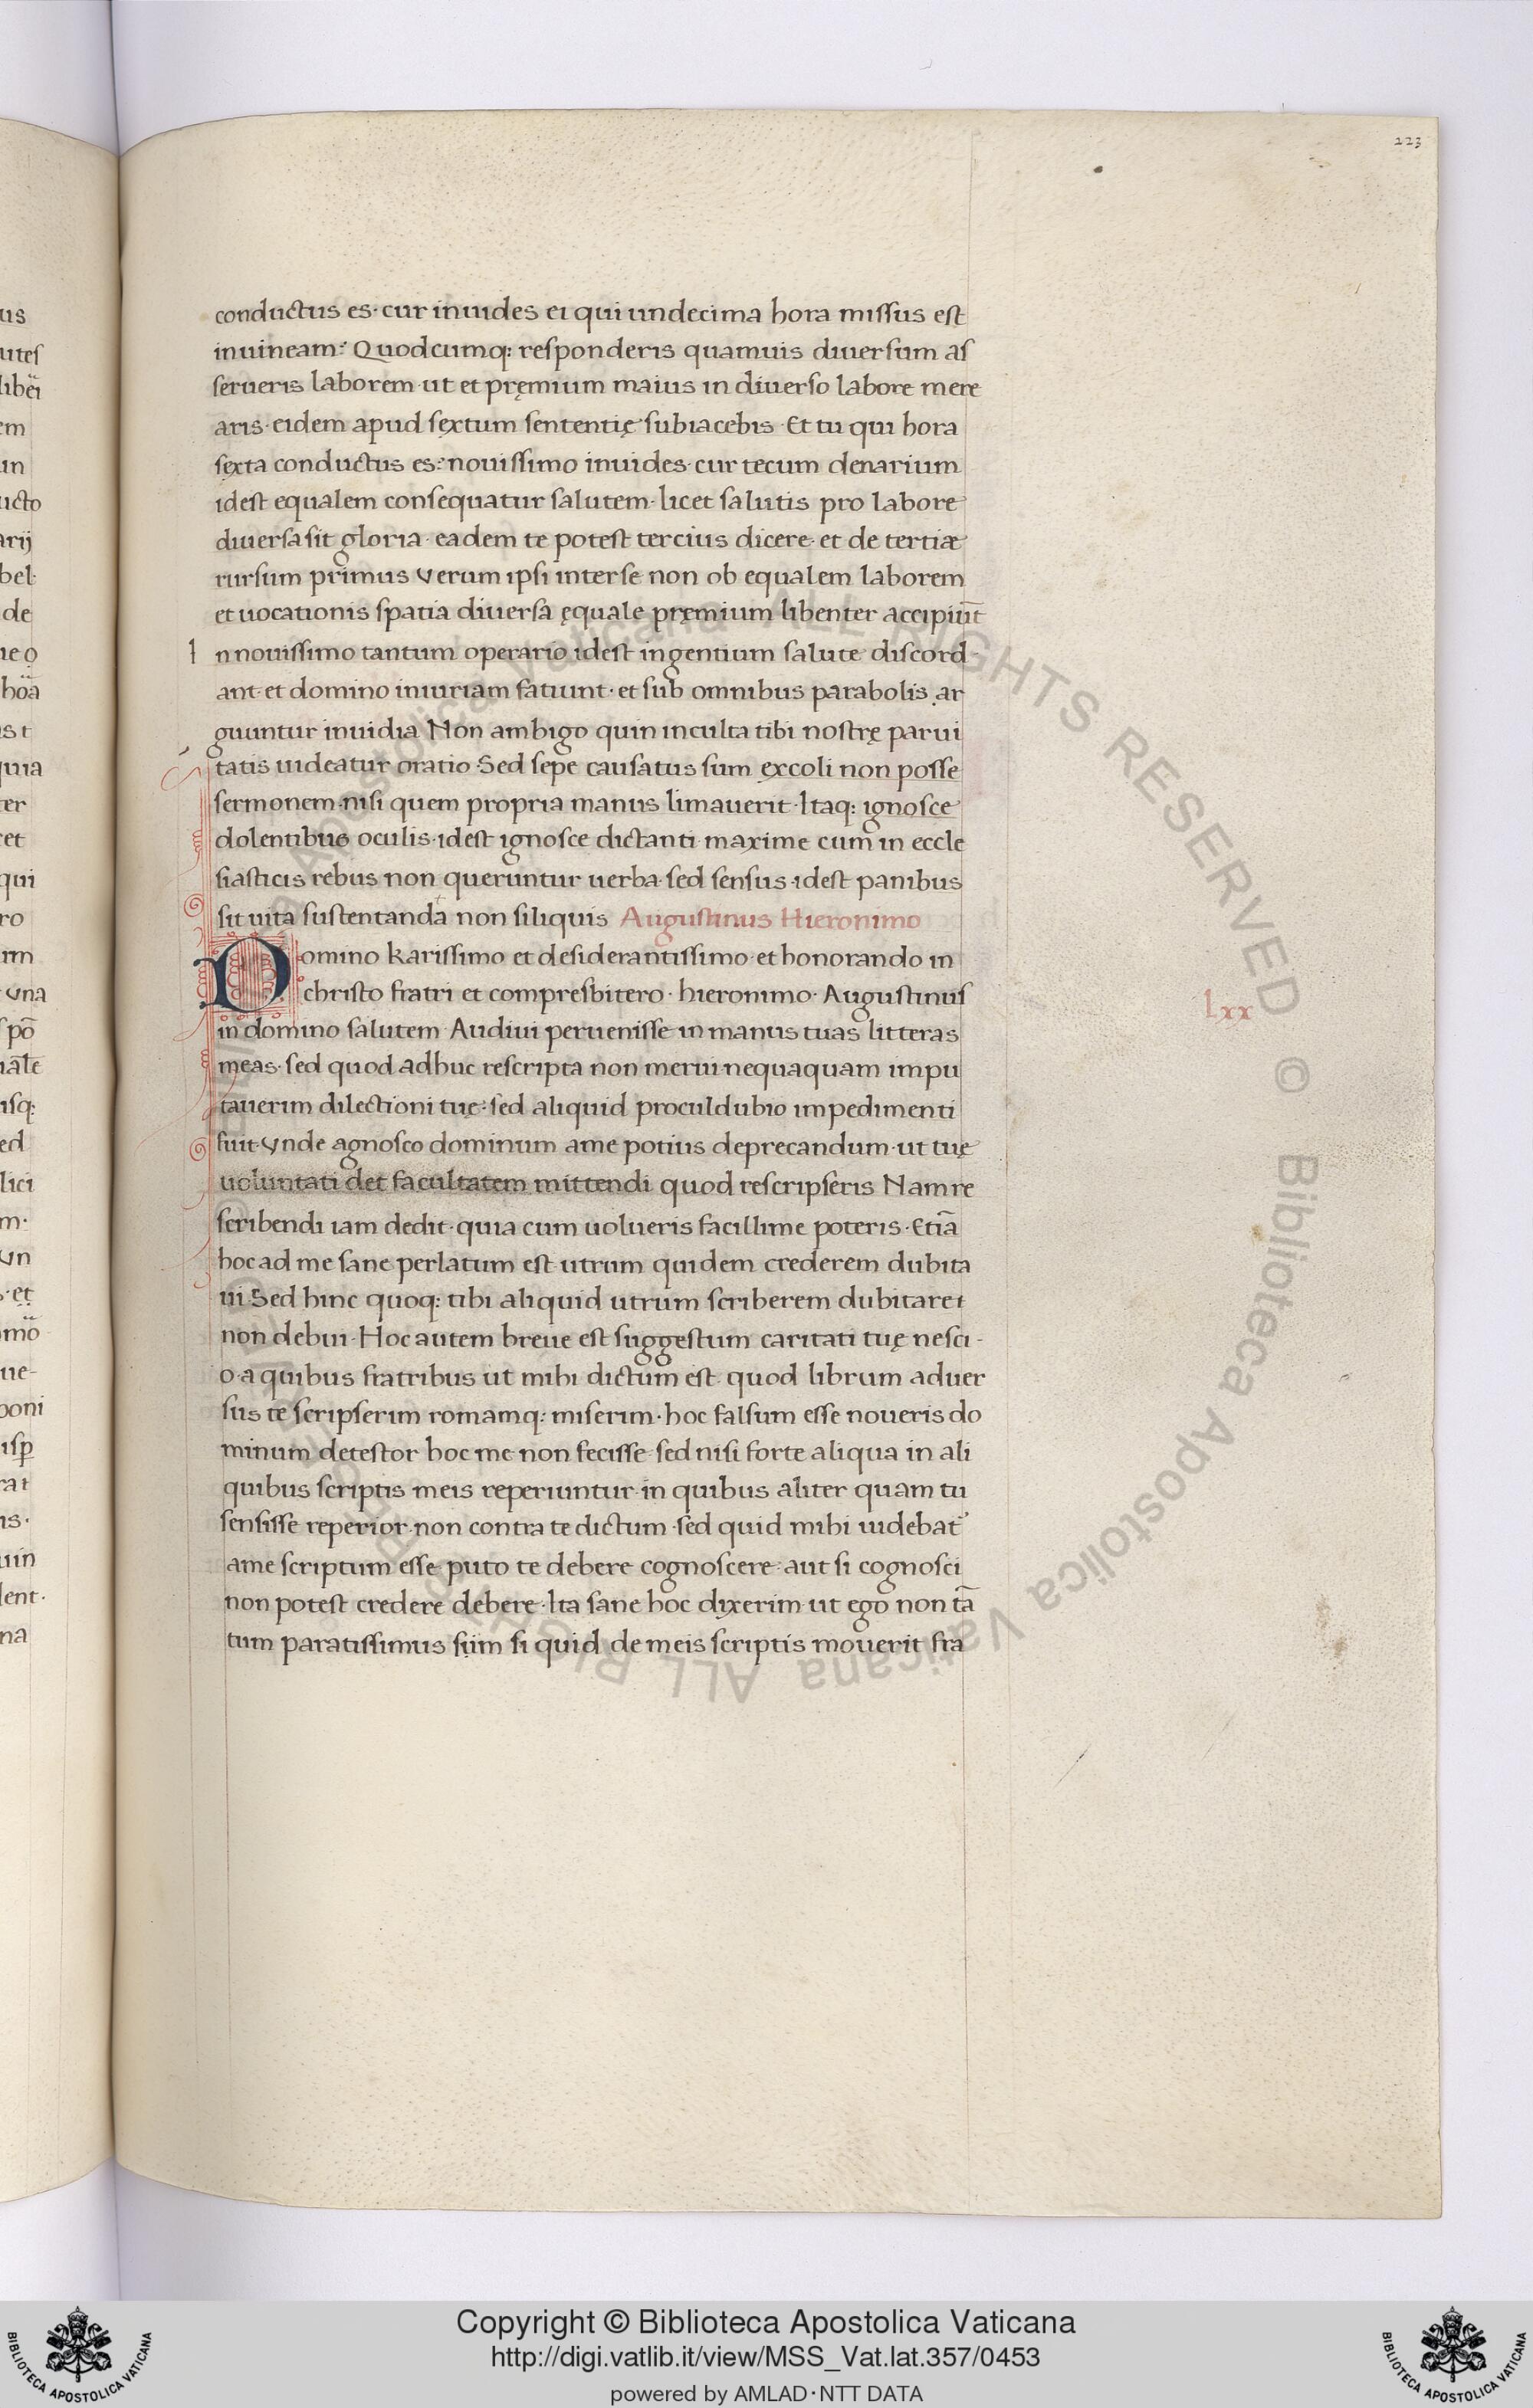 223
conductus es· cur inuides ei qui undecima hora missus est
inuineam? Quodcumq; responderis quamuis diuersum as
serueris laborem ut et pręmium maius in diuerso labore mere
aris· eidem apud sextum sententię subiacebis· Et tu qui hora
sexta conductus es· nouissimo inuides· cur tecum denarium
idest equalem consequatur salutem· licet salutis pro labore
diuersa sit gloria· eadem te potest tercius dicere· et de tertiæ
rursum primus verum ipsi inter se non ob equalem laborem
et uocationis spatia diuersa ęquale pręmium libenter accipiūt
I n nouissimo tantum operario idest in gentium salute discord-
ant· et domino iniuriam fatiunt· et sub omnibus parabolis ar
guuntur inuidia Non ambigo quin inculta tibi nostrę parui
tatis uideatur oratio· Sed sepe causatus sum excoli non posse
sermonem nisi quem propria manus limauerit· Itaq; ignosce
dolentibus oculis· idest ignosce dictanti maxime cum in eccle
siasticis rebus non queruntur uerba· sed sensus· idest panibus
sit uita sustentanda non siliquis Augustinus Hieronimo
Domino karissimo et desiderantissimo· et honorando in
christo fratri et compresbitero· hieronimo· Augustinus
lxx
in domino salutem Audiui peruenisse in manus tuas litteras
meas· sed quod adhuc rescripta non merui nequaquam impu
tauerim dilectioni tuę· sed aliquid proculdubio impedimenti
fuit· vnde agnosco dominum ame potius deprecandum· ut tuę
uoluntati det facultatem mittendi quod rescripseris Nam re
scribendi iam dedit· quia cum uolueris facillime poteris· Etiā
hoc ad me sane perlatum est utrum quidem crederem dubita
ui Sed hinc quoq; tibi aliquid utrum scriberem dubitare
non debui· Hoc autem breue est suggestum caritati tuę nesci-
o· a quibus fratribus ut mihi dictum est quod librum aduer
sus te scripserim romamq; miserim· hoc falsum esse noueris do
minum detestor hoc me non fecisse· sed nisi forte aliqua in ali
quibus scriptis meis reperiuntur in quibus aliter quam tu
sensisse reperior· non contra te dictum· sed quid mihi uidebat᷒
ame scriptum esse puto te debere cognoscere· aut si cognosci
non potest credere debere· Ita sane hoc dixerim ut ego non tā
tum paratissimus sum si quid de meis scriptis mouerit fra
us
utes
em
in
ucto
arij
bel·
de
st
quia
ter
cet
qui
ro
vna
isq;
ed
lici
m·
un
ue-
poni
rat
is·
uin
dent·
na
Biblioteca Apostolica Vaticana ALL RIGHTS RESERVED ©
Copyright © Biblioteca Apostolica Vaticana
http://digi.vatlib.it/view/MSS_Vat.lat.357/0453
powered by AMLAD·NTT DATA
BIBLIOTECA APOSTOLICA VATICANA
BIBLIOTECA APOSTOLICA VATICANA